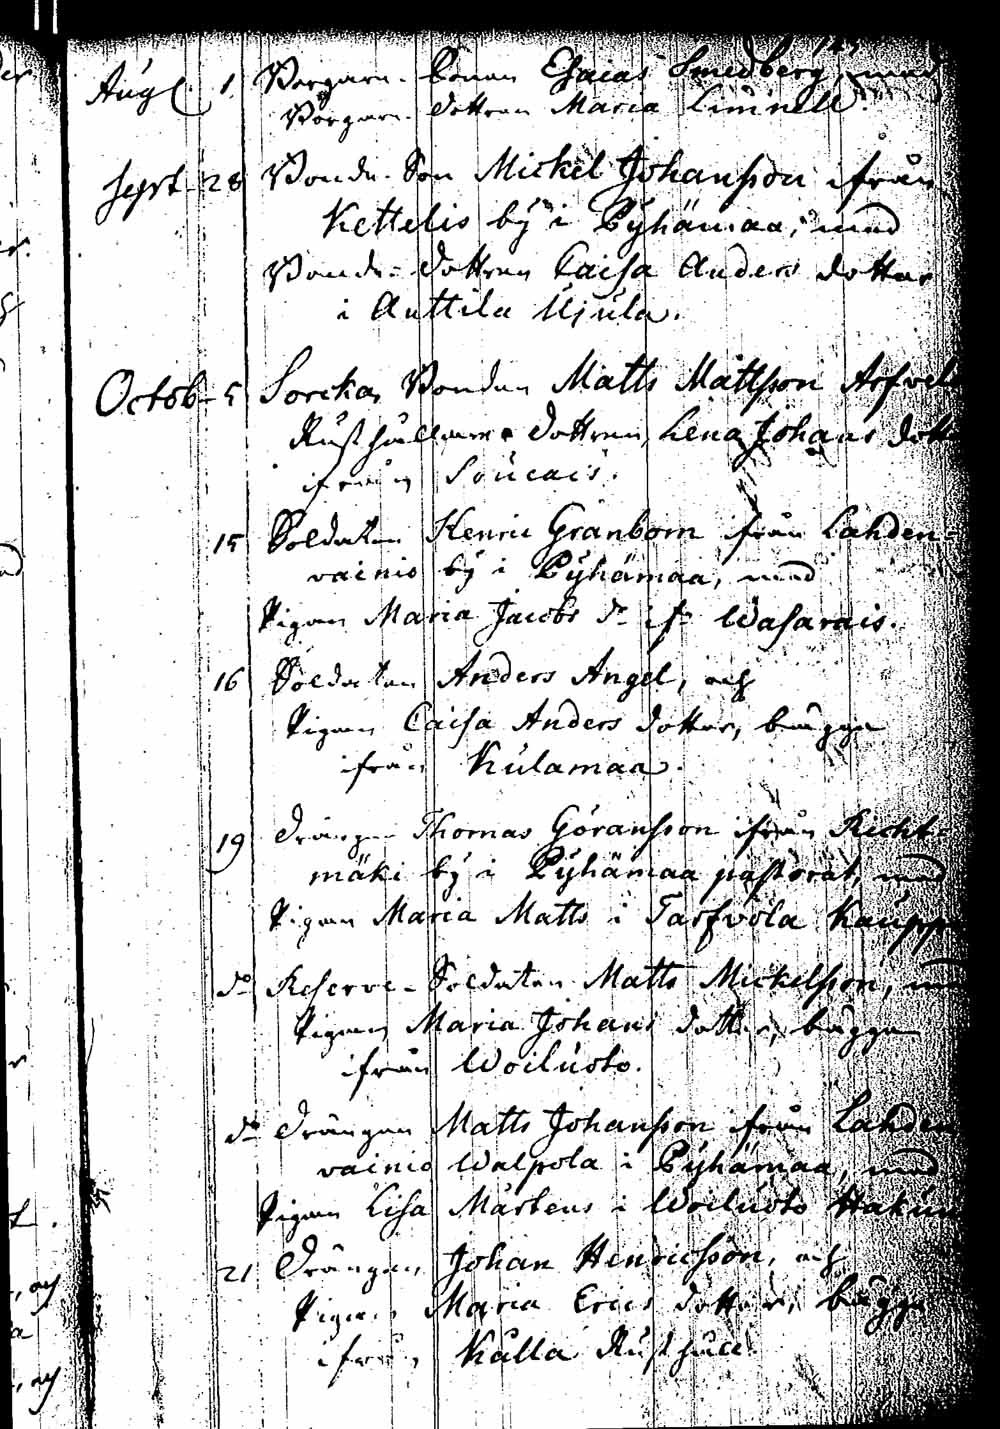 Aug. 1. Borgare-Sonen Esaias Smedberg, med
Borgare-dottren Maria Limnell.
Sept. 28 Bonde-Son Mickel Johansson ifrån
Kettelis by i Pyhämaa, med
Bonde-dottren Caisa Anders dotter
i Anttila Ujula.
Octob. 5 Sorcka Bonden Matts Mattsson
Rusthållare dottren, Lena Johans dott
ifrån Soucais.
15 Soldaten Henric Granborn ifrån Lahden-
vainio by i Pyhämaa, med
Pigan Maria Jacobs dr ifr Wasarais.
16 Soldaten Anders Angel, och
Pigan Caisa Anders dotter, bägge
ifrån Kulamaa.
19 Drängen Thomas Göransson ifrån Richt-
mäki by i Pyhämaa pastorat, med
Pigan Maria Matts i Tarfvola Kauppi
do Reserve-Soldaten Matts Mickelsson, med
Pigan Maria Johans dotter, bägge
ifrån Woiluoto.
do Drängen Matts Johansson ifrån Lahden
vainio Walpola i Pyhämaa, med
Pigan Lisa Mårtens i Woiluoto
21 Drängen Johan Henricsson, och
Pigan Maria Erics dotter, bägge
ifrån Kålla Rusthåll.